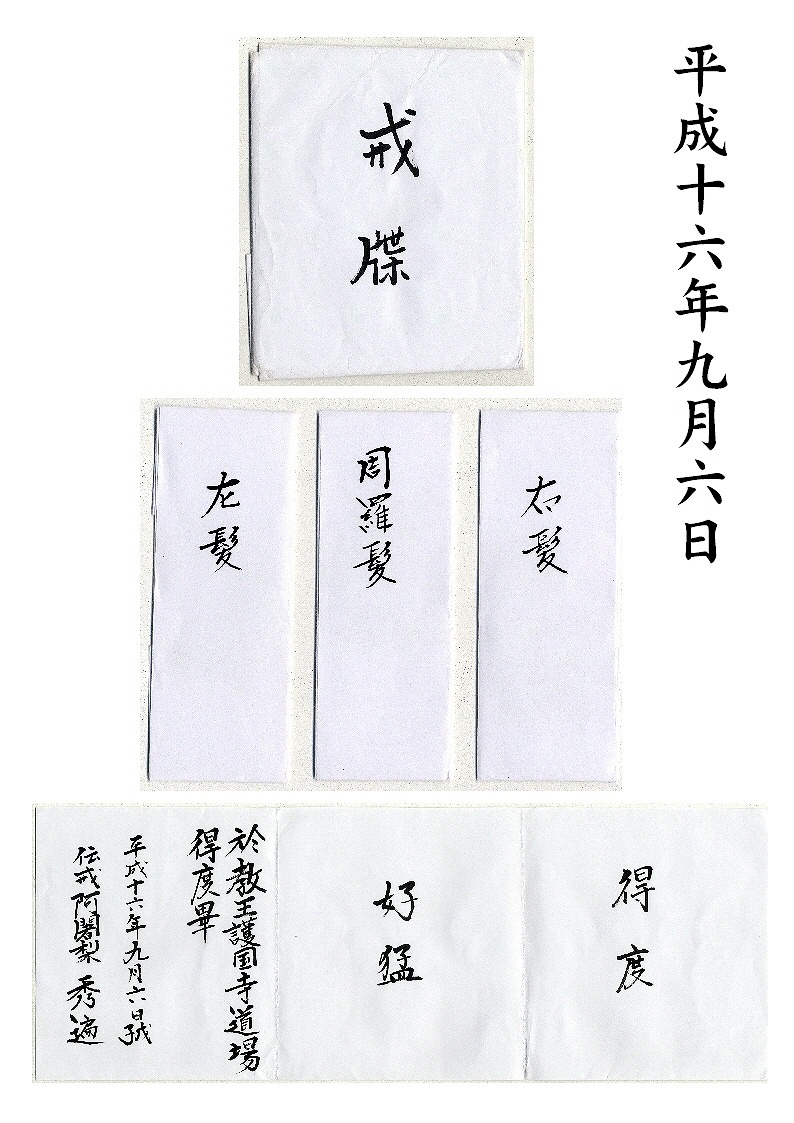 平成十六年九月六日
戒牒
右髪
周羅髪
左髪
得度
好猛
於教王護国寺道場
得度畢
平成十六年九月六日
伝戒阿闍梨 秀遍